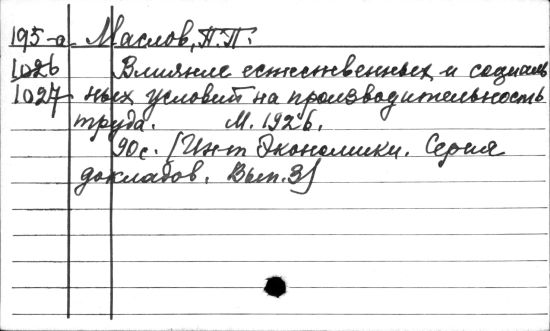 195-а Маслов, П.П.
1026 Влияние естественных и социаль
1027 ных условий на производительность
труда. М. 1926.
90с. [Ин-т Экономики. Серия
докладов. Вып. 3]